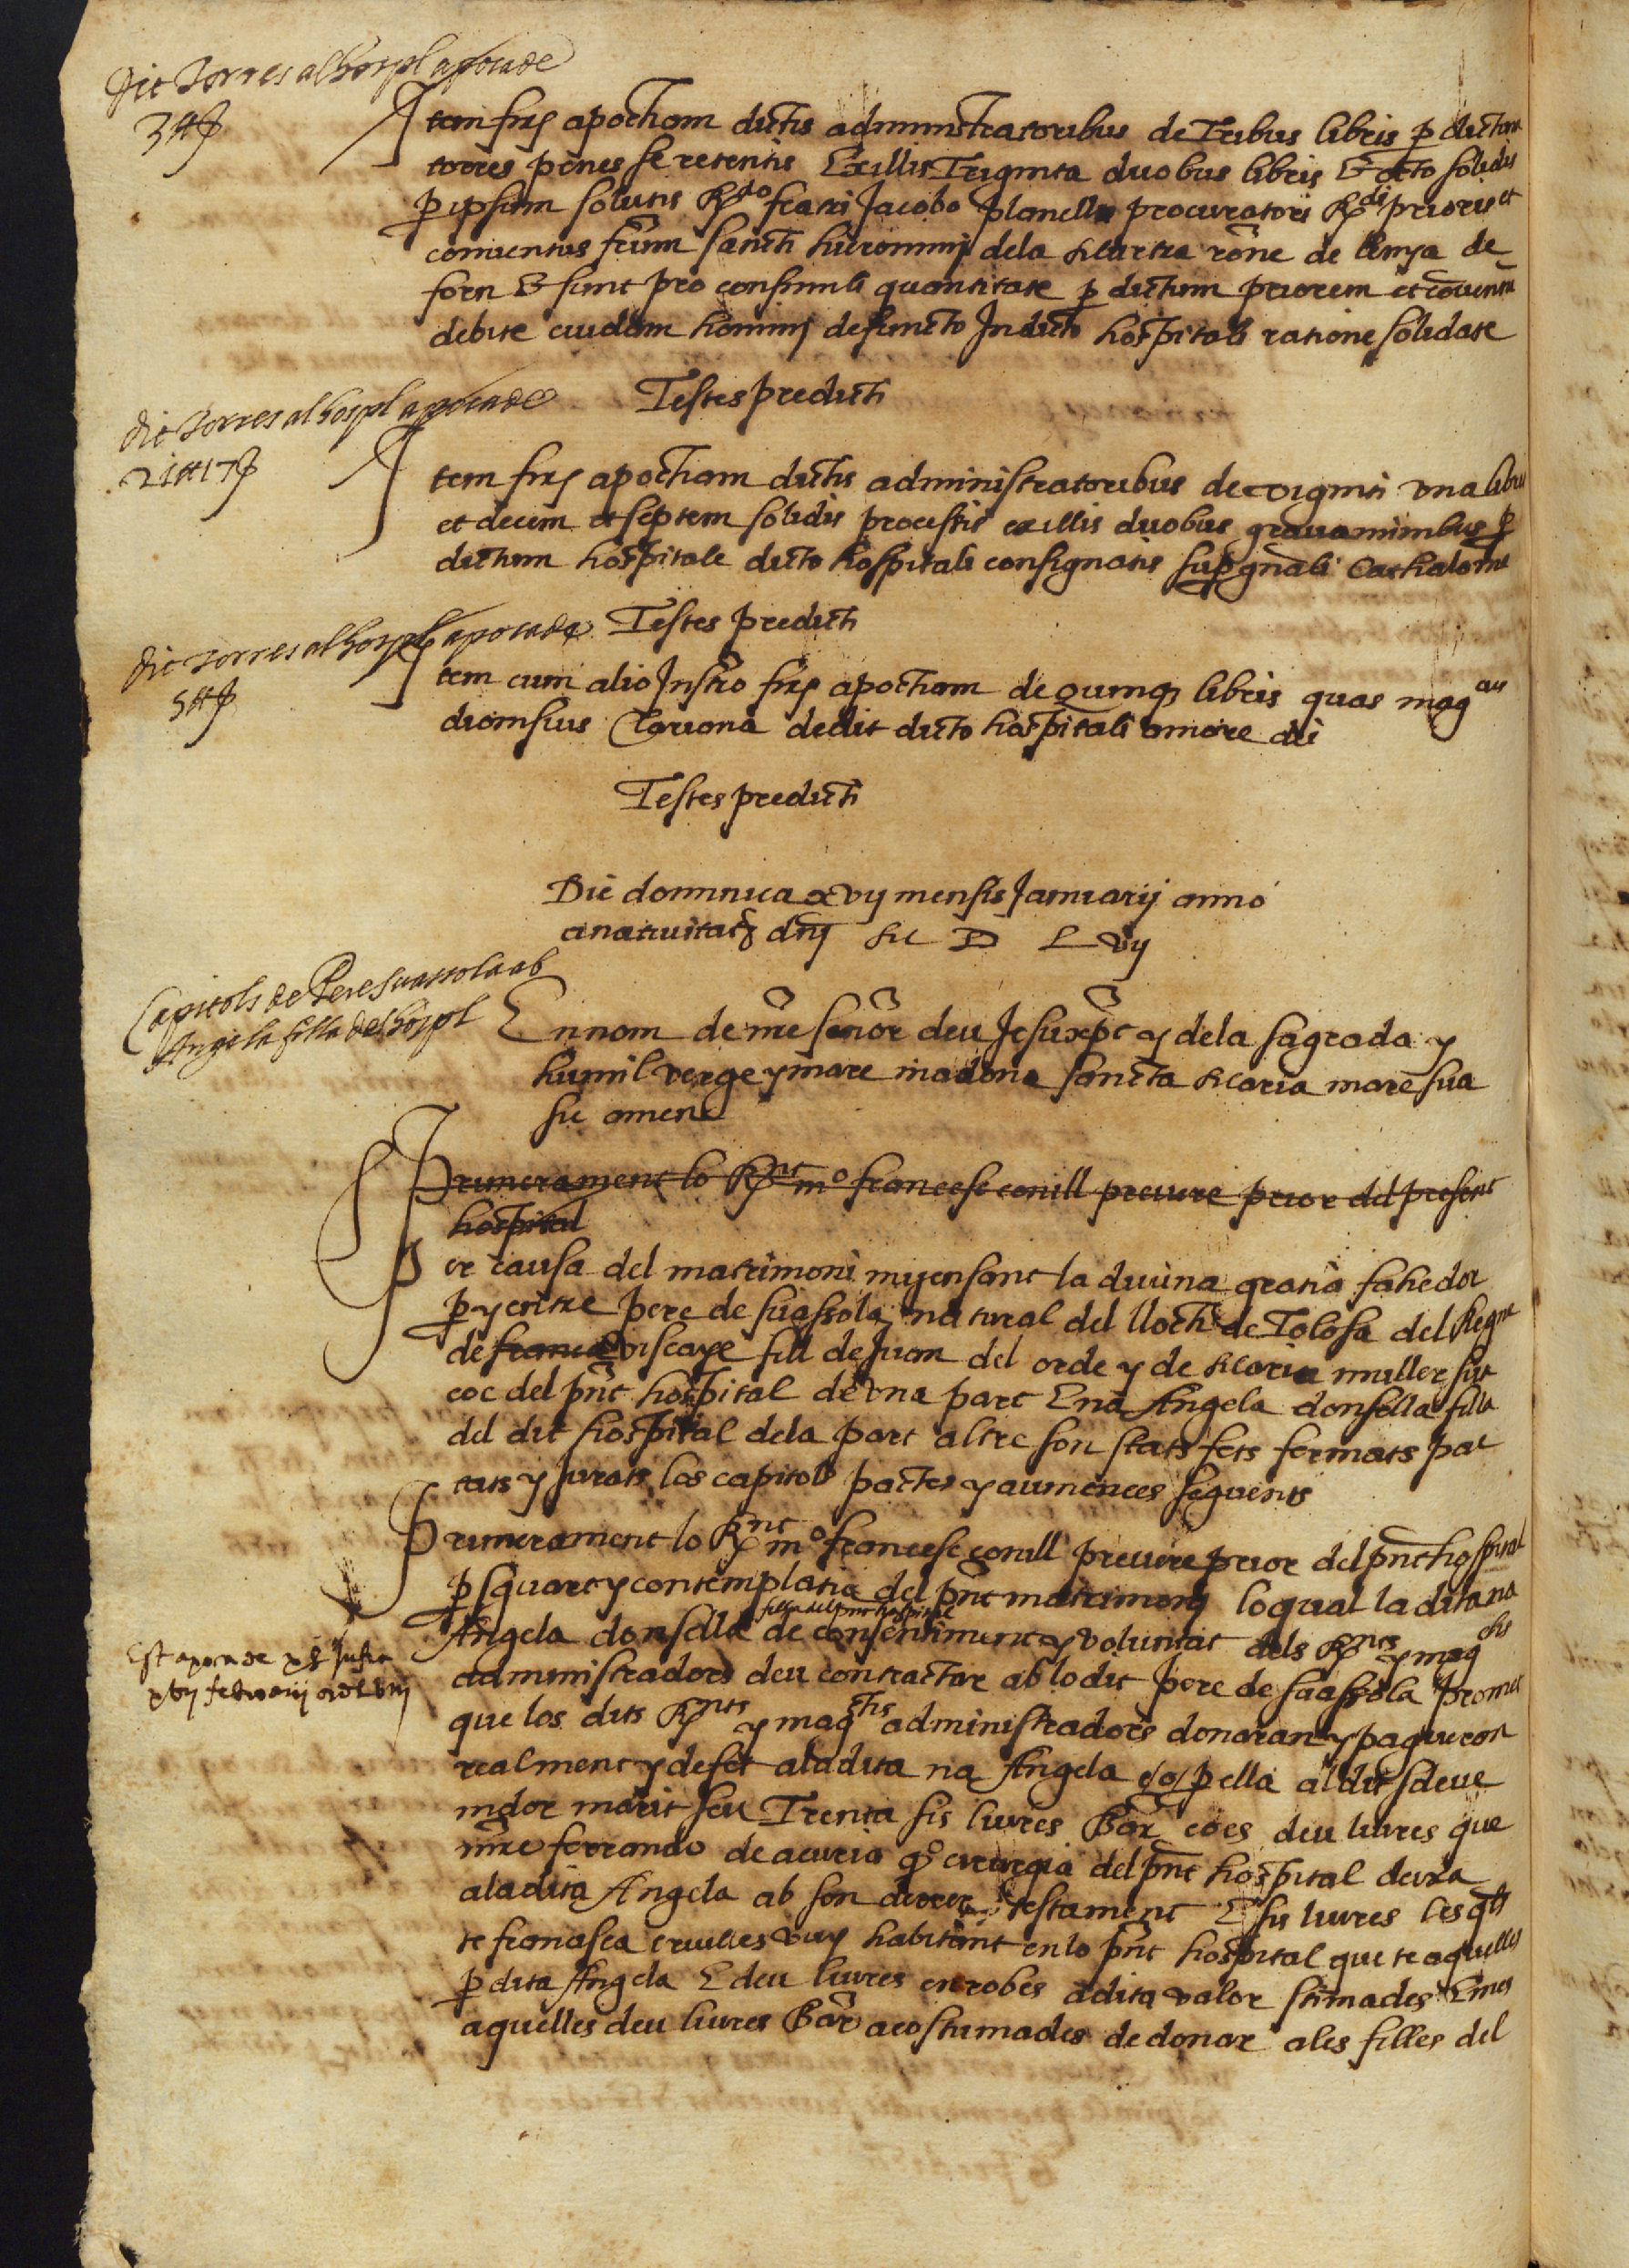 Dit Torres al hospl apoca de
3 ₶ ẞ
Item firmj apocham dictis administratoribus de Tribus libris p dictum
torres penes se retentis Ex illis Triginta duobus libris & octo solidis
p ipsum solutis Rdo fratri Jacobo planella procuratori Rdi prioris et
conventus frum sancti hieronimj dela Murtra rone de llenya de
forn & sunt pro consimili quantitate p dictum priorem et convent
debite cuidam hominj defuncto In dicto hospitali ratione solidate
Testes predicti
Dit Torres al hospl apoca de
21 ₶ 17 ẞ
Item firmj apocham dictis administratoribus de viginti una libris
et decem et septem solidis processis ex illis duobus gravaminibus p
dictum hospitale dicto hospitali consignatis sup gnali Cathalonie
Testes predicti
Dit Torres al hospl apoca de
5 ₶ ẞ
Item cum alio Instro firmj apocham de quinqz libris quas magcus
dionisius Clariona dedit dicto hospitali amore dei
Testes predicti
Die dominica xvij mensis Januarij anno
anativitate dnj M D L vij
Capitols de Pere Suassola ab
Angela filla del hospl
En nom de nre senor deu Jesuxpt y dela sagrada y
humil verge y mare madona sancta Maria mare sua
sie amen
Primerament lo Rnt mo francesc conill prevere prior del present
hospital
Per causa del matrimoni mijensant la divina gratia fahedor
p y entre pere de suassola natural del lloch de Tolosa del Regne
de francia viscaye fill de Juan del orde y de Maria muller sua
coc del pnt hospital de una part E na Angela donsella filla
del dit hospital dela part altre son stats fets fermats pac
tats y jurats los capitols pactes y avinences seguents
Primerament lo Rnt mo francesc conill prevere prior del pnt hospital
p sguart y contemplatio del pnt matrimonj loqual la dita na
filla del pnt hospital
Angela donsella de consentiment y voluntat dels Rnts y magchs
Est apoca de xx ₶ Infra
xvij februarij MDLviij
administradors deu contractar ab lo dit pere de suassola promet
que los dits Rnts y magchs administradors donaran y pagueran
realment y defet ala dita na Angela e/o p ella al dit sdeve
nidor marit seu Trenta sis liures Bar ço es deu liures que
mre ferrando de acuria qo cirurgia del pnt hospital deixa
ala dita Angela ab son derrer testament E sis liures les qls
te franasca cruilles vuy habitant en lo pnt hospital que te aquelles
p dita Angela E deu liures en robes a dita valor stimades E mes
aquelles deu liures Bar acostumades de donar ales filles del